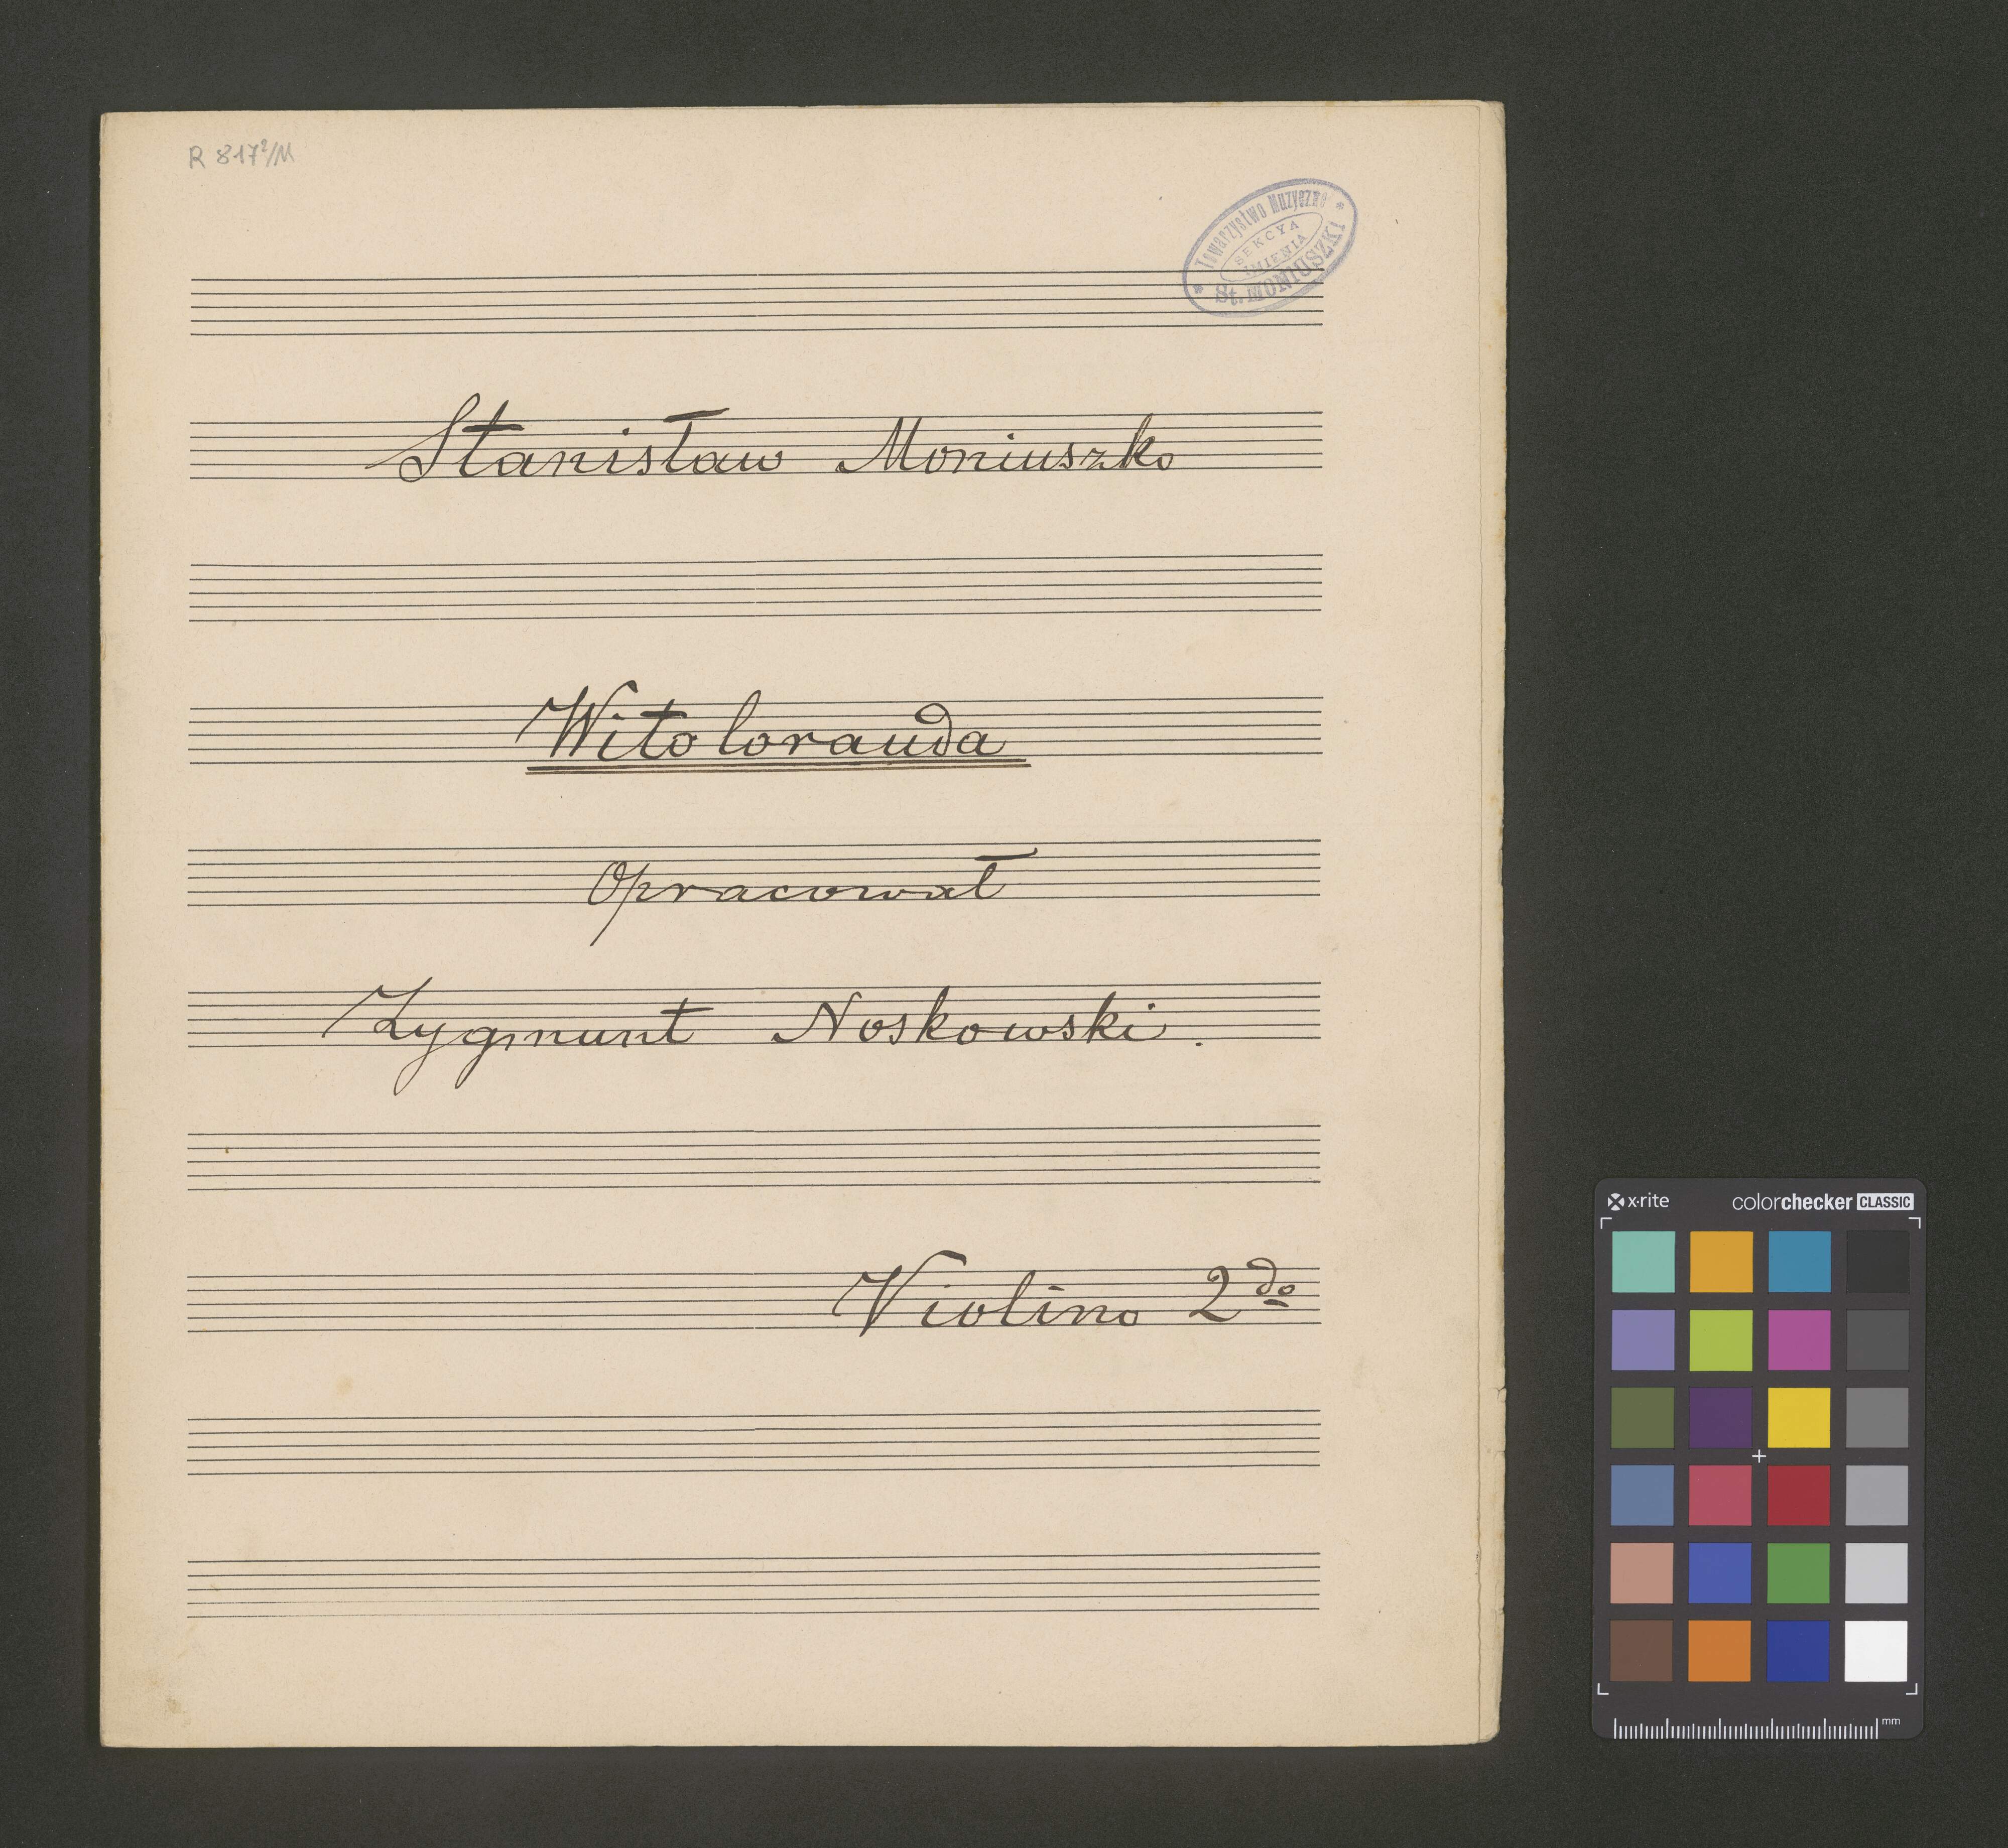 R 817²/M
* Towarzystwo Muzyczne *
SEKCYA
IMIENIA
St. MONIUSZKI
Stanisław Moniuszko
Witolorauda
Opracował
Zygmunt Noskowski.
Violino 2do
x·rite colorchecker CLASSIC
mm